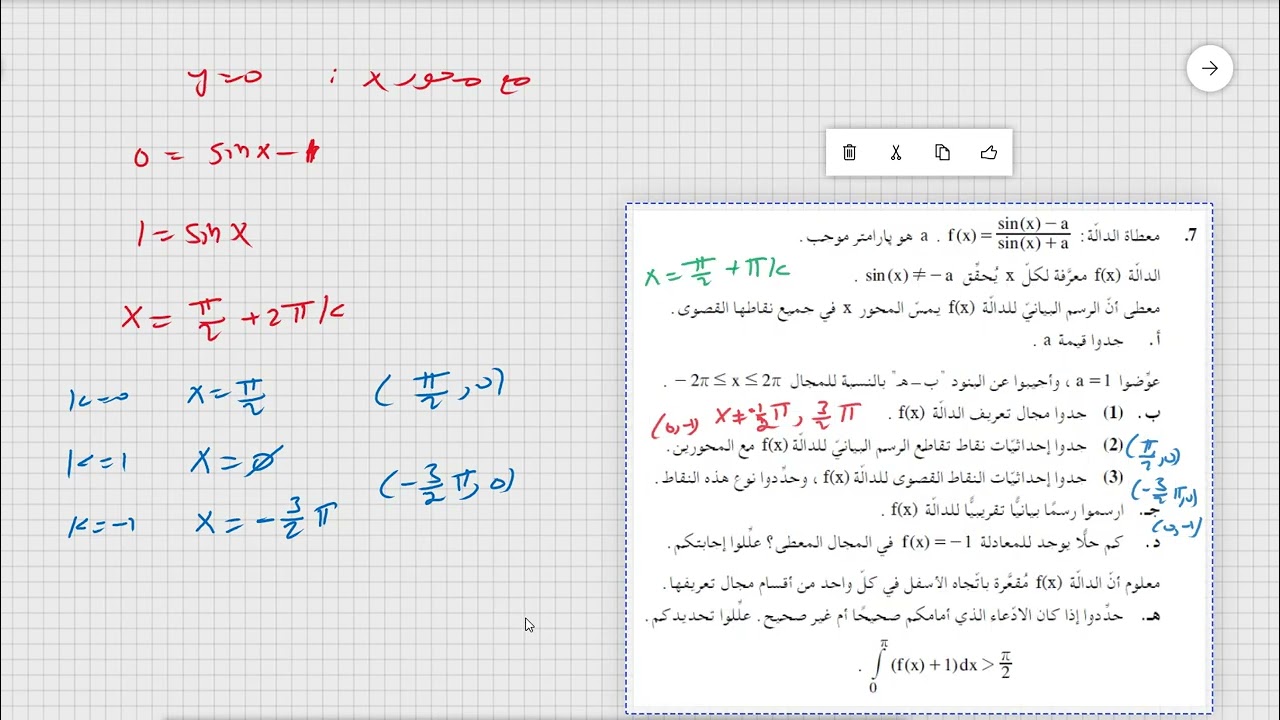 مع محور x : y=0
0 = sin x - 1
1 = sin x
x = π/2 + 2πk
k=0 x = π/2 (π/2, 0)
k=1 x = ∅
k=-1 x = -3/2 π (-3/2 π, 0)
7. معطاة الدالّة: f(x) = (sin(x) − a)/(sin(x) + a) . a هو پارامتر موجب .
الدالّة f(x) معرَّفة لكلّ x يُحقِّق sin(x) ≠ −a .
x = π/2 + πk
معطى أنّ الرسم البيانيّ للدالّة f(x) يمسّ المحور x في جميع نقاطها القصوى .
أ. جدوا قيمة a .
عوِّضوا a = 1 ، وأجيبوا عن البنود "ب-هـ" بالنسبة للمجال −2π ≤ x ≤ 2π .
ب. (1) جدوا مجال تعريف الدالّة f(x) .
x ≠ -1/2 π, 3/2 π
(0,-1)
(2) جدوا إحداثيّات نقاط تقاطع الرسم البيانيّ للدالّة f(x) مع المحورين .
(π/2, 0)
(3) جدوا إحداثيّات النقاط القصوى للدالّة f(x) ، وحدِّدوا نوع هذه النقاط .
(-3/2 π, 0)
جـ. ارسموا رسمًا بيانيًّا تقريبيًّا للدالّة f(x) .
(0,-1)
د. كم حلًّا يوجد للمعادلة f(x) = −1 في المجال المعطى؟ علِّلوا إجابتكم .
معلوم أنّ الدالّة f(x) مُقعَّرة باتّجاه الأسفل في كلّ واحد من أقسام مجال تعريفها .
هـ. حدِّدوا إذا كان الادّعاء الذي أمامكم صحيحًا أم غير صحيح . علِّلوا تحديدكم .
∫₀^π (f(x) + 1) dx > π/2 .